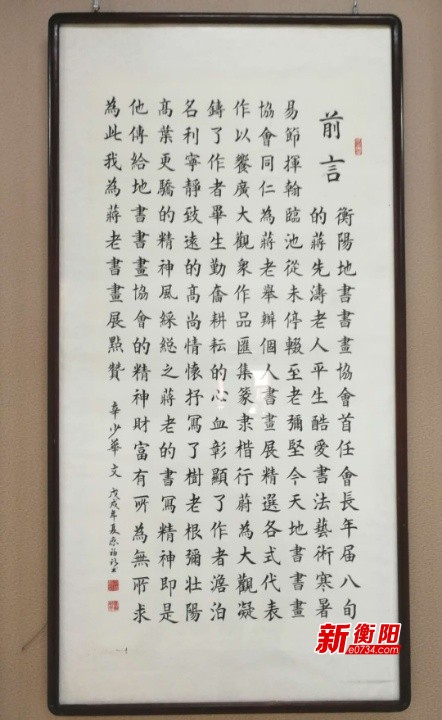 前言
衡陽地書書畫協會首任會長年届八旬
的蔣先濤老人平生酷愛書法藝術寒暑
易節揮翰臨池從未停輟至老彌堅今天地書書畫
協會同仁為蔣老舉辦個人書畫展精選各式代表
作以饗廣大觀衆作品匯集篆隶楷行蔚為大觀凝
鑄了作者畢生勤奮耕耘的心血彰顯了作者澹泊
名利寧靜致遠的高尚情懷抒寫了樹老根彌壯陽
高葉更驕的精神風綵総之蔣老的書寫精神即是
他傳給地書書畫協會的精神財富有所為無所求
為此我為蔣老書畫展點贊 辛少華文
戊戌年夏
新衡阳
e0734.com